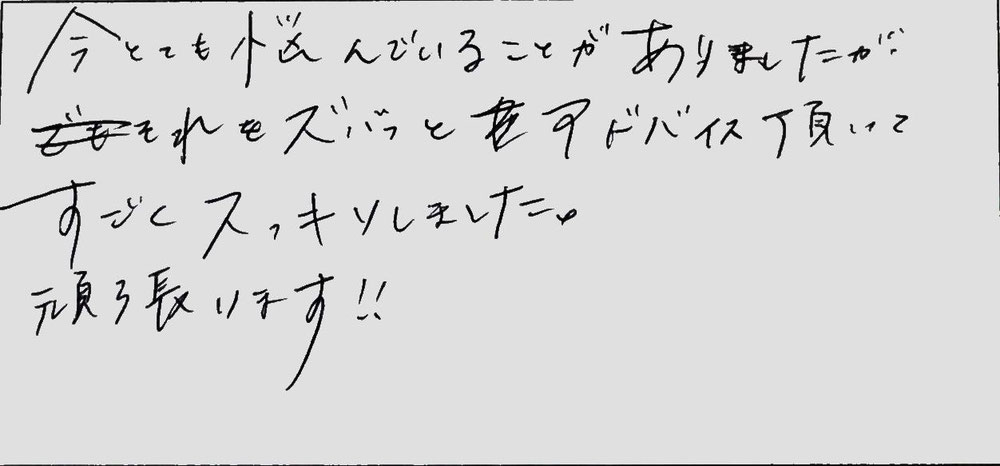 今とても悩んでいることがありましたが
それをズバッとアドバイス頂いて
すごくスッキリしました。
頑張ります!!